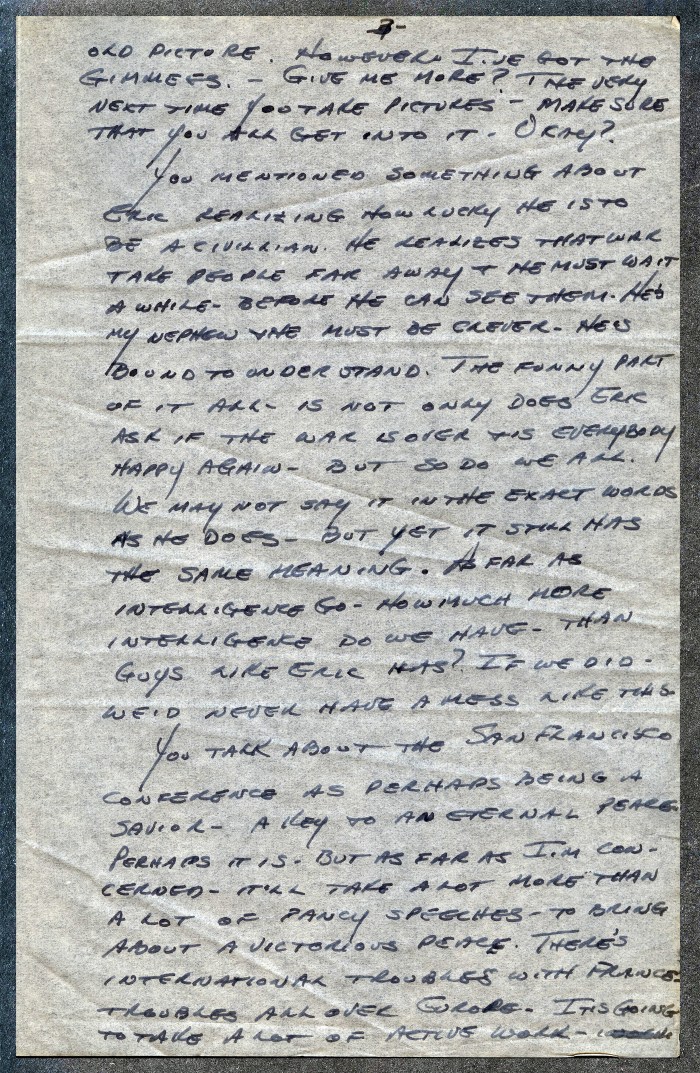 3-
OLD PICTURE. HOWEVER. I.VE GOT THE
GIMMEES. - GIVE ME MORE? THE VERY
NEXT TIME YOU TAKE PICTURES - MAKE SURE
THAT YOU ALL GET INTO IT - OKAY?
YOU MENTIONED SOMETHING ABOUT
ERIC REALIZING HOW LUCKY HE IS TO
BE A CIVILIAN. HE REALIZES THAT WAR
TAKE PEOPLE FAR AWAY + HE MUST WAIT
A WHILE - BEFORE HE CAN SEE THEM. HE'S
MY NEPHEW + HE MUST BE CLEVER - HE'S
BOUND TO UNDERSTAND. THE FUNNY PART
OF IT ALL - IS NOT ONLY DOES ERIC
ASK IF THE WAR IS OVER + IS EVERYBODY
HAPPY AGAIN - BUT SO DO WE ALL.
WE MAY NOT SAY IT IN THE EXACT WORDS
AS HE DOES - BUT YET IT STILL HAS
THE SAME MEANING. AS FAR AS
INTELLIGENCE GO - HOW MUCH MORE
INTELLIGENCE DO WE HAVE - THAN
GUYS LIKE ERIC HAS? IF WE DID -
WE'D NEVER HAVE A MESS LIKE THIS.
YOU TALK ABOUT THE SAN FRANCISCO
CONFERENCE AS PERHAPS BEING A
SAVIOR - A KEY TO AN ETERNAL PEACE.
PERHAPS IT IS - BUT AS FAR AS I'M CON-
CERNED - IT'LL TAKE A LOT MORE THAN
A LOT OF FANCY SPEECHES - TO BRING
ABOUT A VICTORIOUS PEACE. THERE'S
INTERNATIONAL TROUBLES WITH FRANCE -
TROUBLES ALL OVER EUROPE - IT'S GOING
TO TAKE A LOT OF ACTIVE WORK -